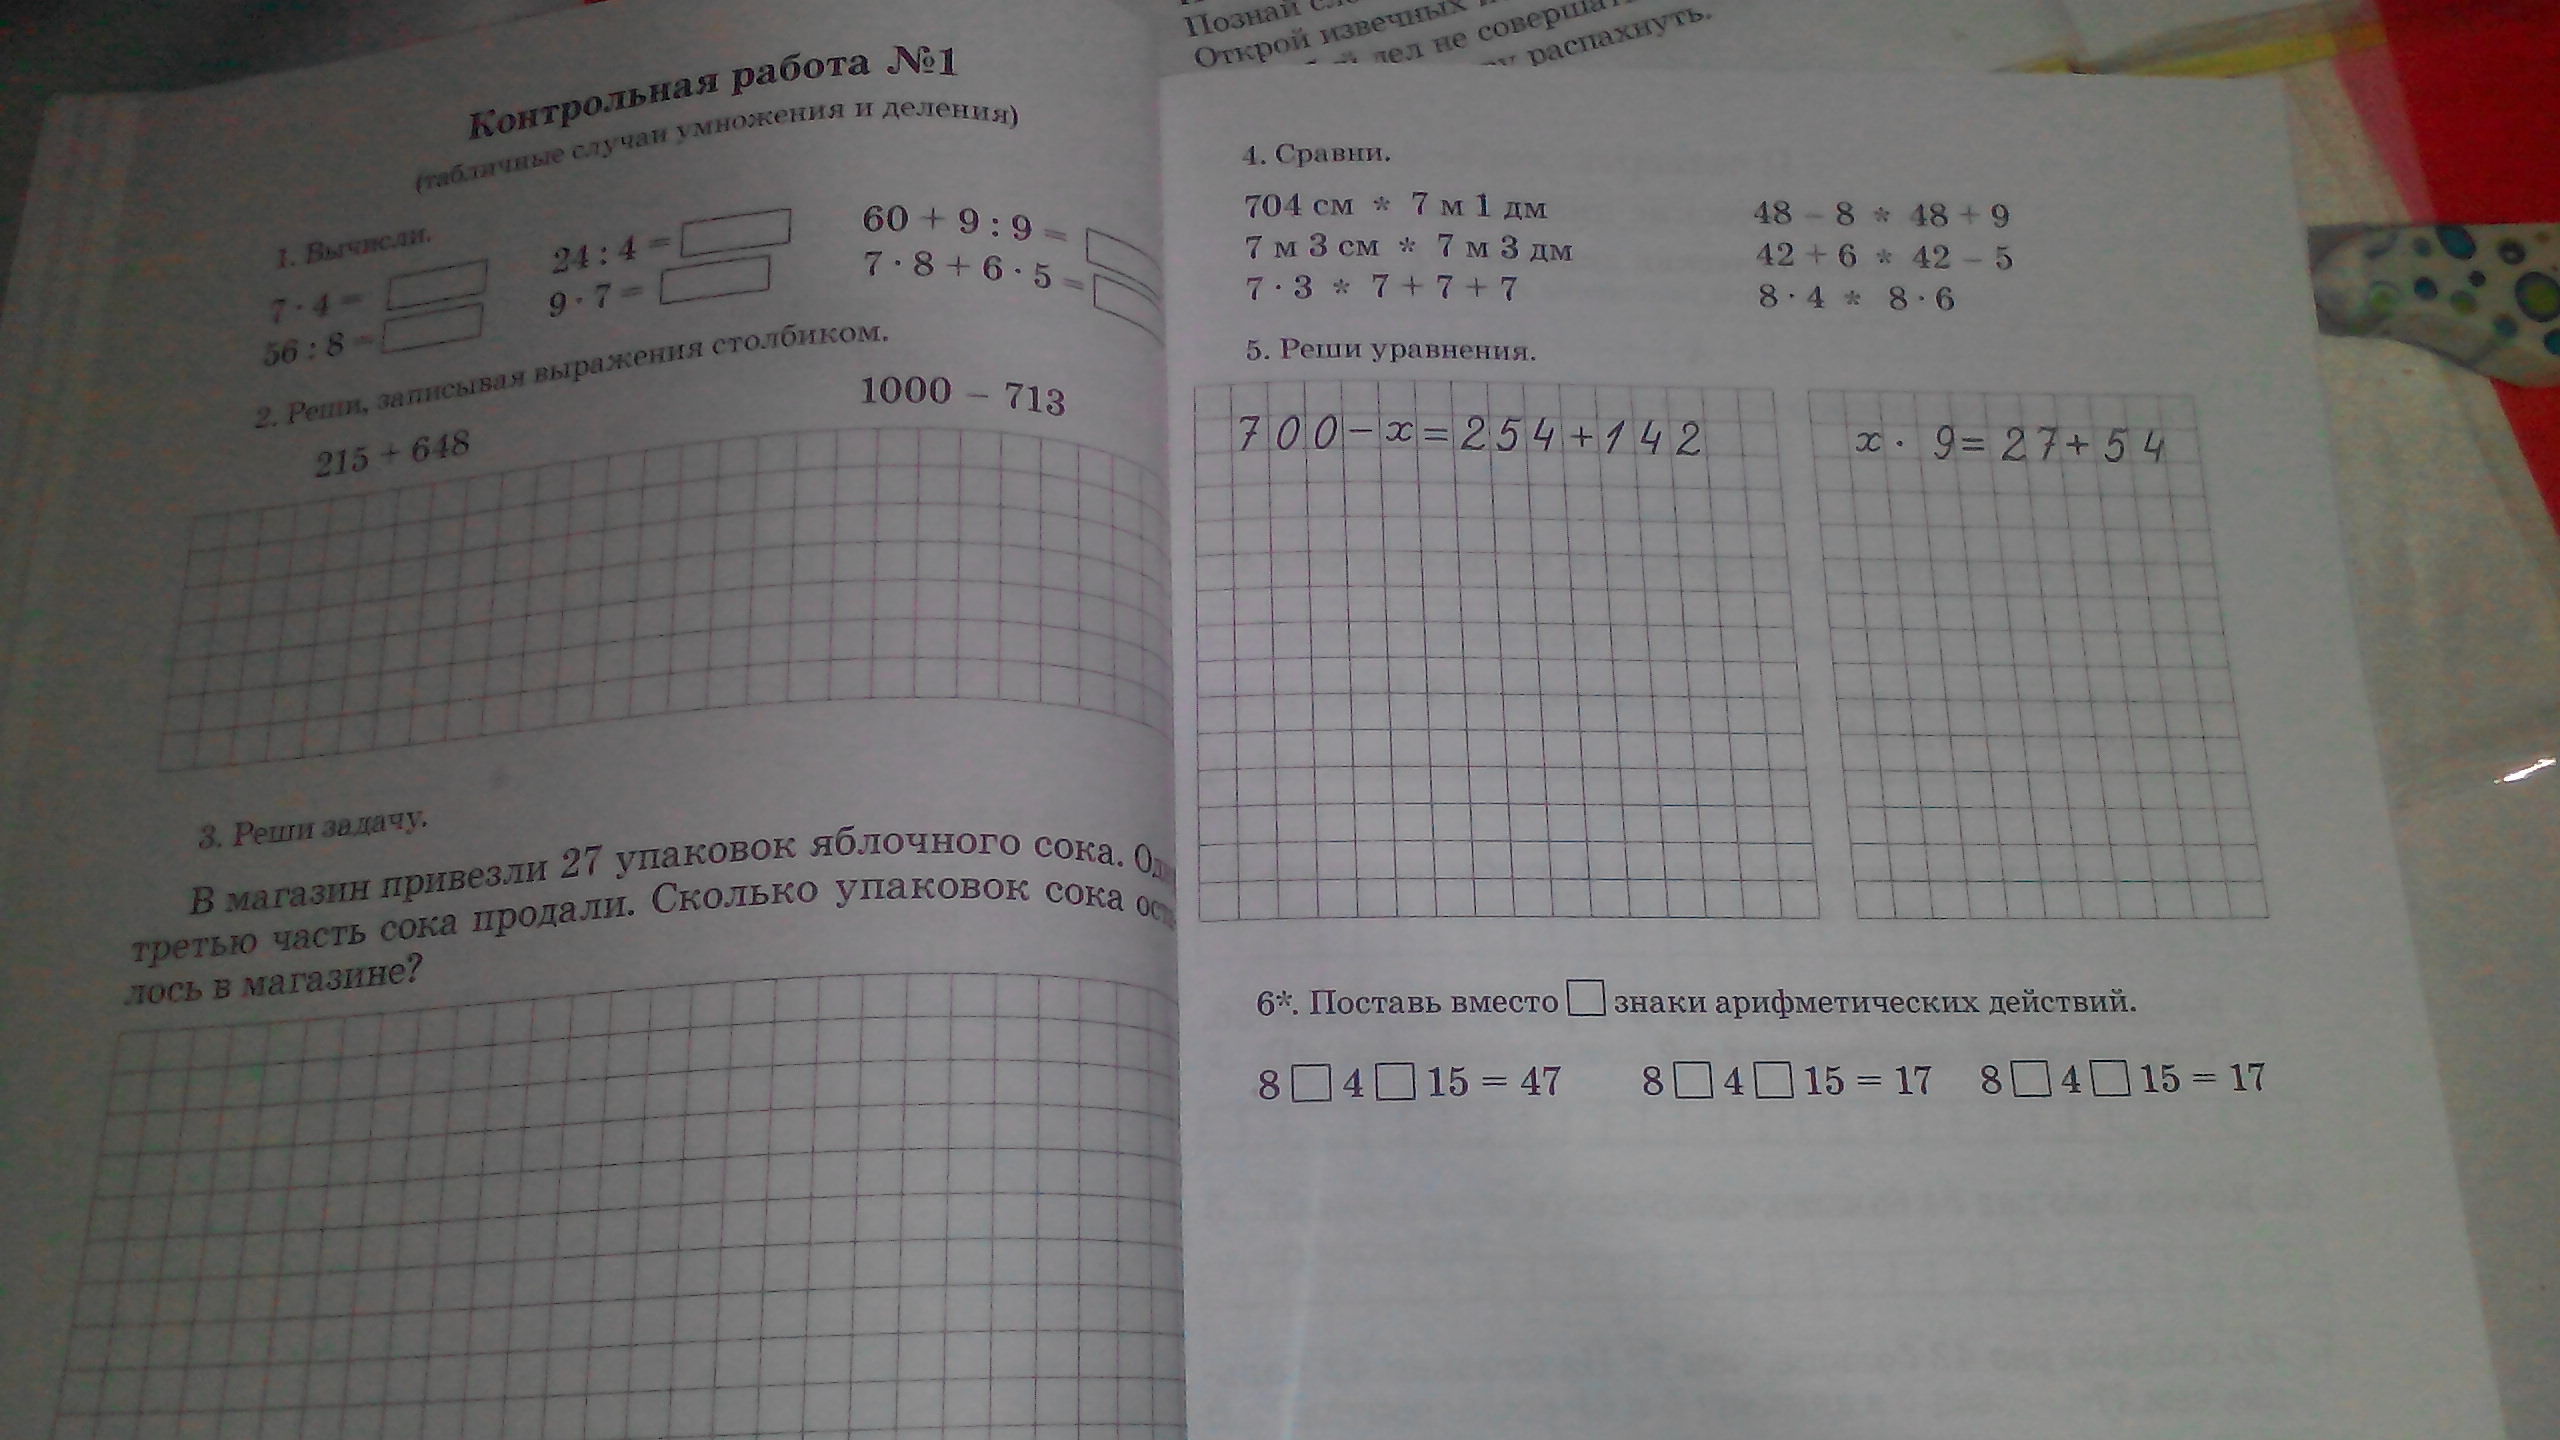 Контрольная работа №1
(табличные случаи умножения и деления)
1. Вычисли.
7 · 4 =
24 : 4 =
60 + 9 : 9 =
56 : 8 =
9 · 7 =
7 · 8 + 6 · 5 =
2. Реши, записывая выражения столбиком.
215 + 648
1000 – 713
3. Реши задачу.
В магазин привезли 27 упаковок яблочного сока.
третью часть сока продали. Сколько упаковок сока
лось в магазине?
Познай
Открой извечных
дел не
распахнуть.
4. Сравни.
704 см * 7 м 1 дм
48 – 8 * 48 + 9
7 м 3 см * 7 м 3 дм
42 + 6 * 42 – 5
7 · 3 * 7 + 7 + 7
8 · 4 * 8 · 6
5. Реши уравнения.
700 – x = 254 + 142
x · 9 = 27 + 54
6*. Поставь вместо □ знаки арифметических действий.
8 □ 4 □ 15 = 47
8 □ 4 □ 15 = 17
8 □ 4 □ 15 = 17